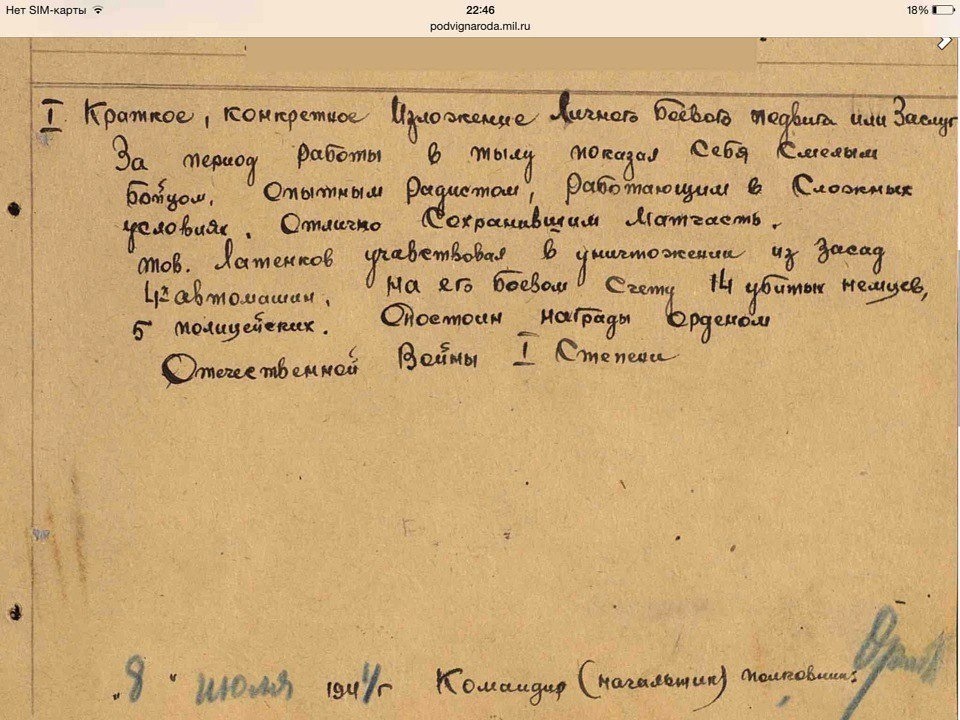 Нет SIM-карты 22:46 18%
podvignaroda.mil.ru
I Краткое, конкретное Изложение Личного Боевого подвига или Заслуг
За период работы в тылу показал Себя Смелым
Бойцом, Опытным Радистом, Работающим в Сложных
условиях, Отлично Сохранившим Матчасть.
тов. Латенков учавствовал в уничтожении из Засад
4х автомашин, на его Боевом Счету 14 убитых немцев,
5 полицейских. Достоин награды Орденом
Отечественной Войны I Степени
„8" июля 1944 г Командир (начальник) полковник: